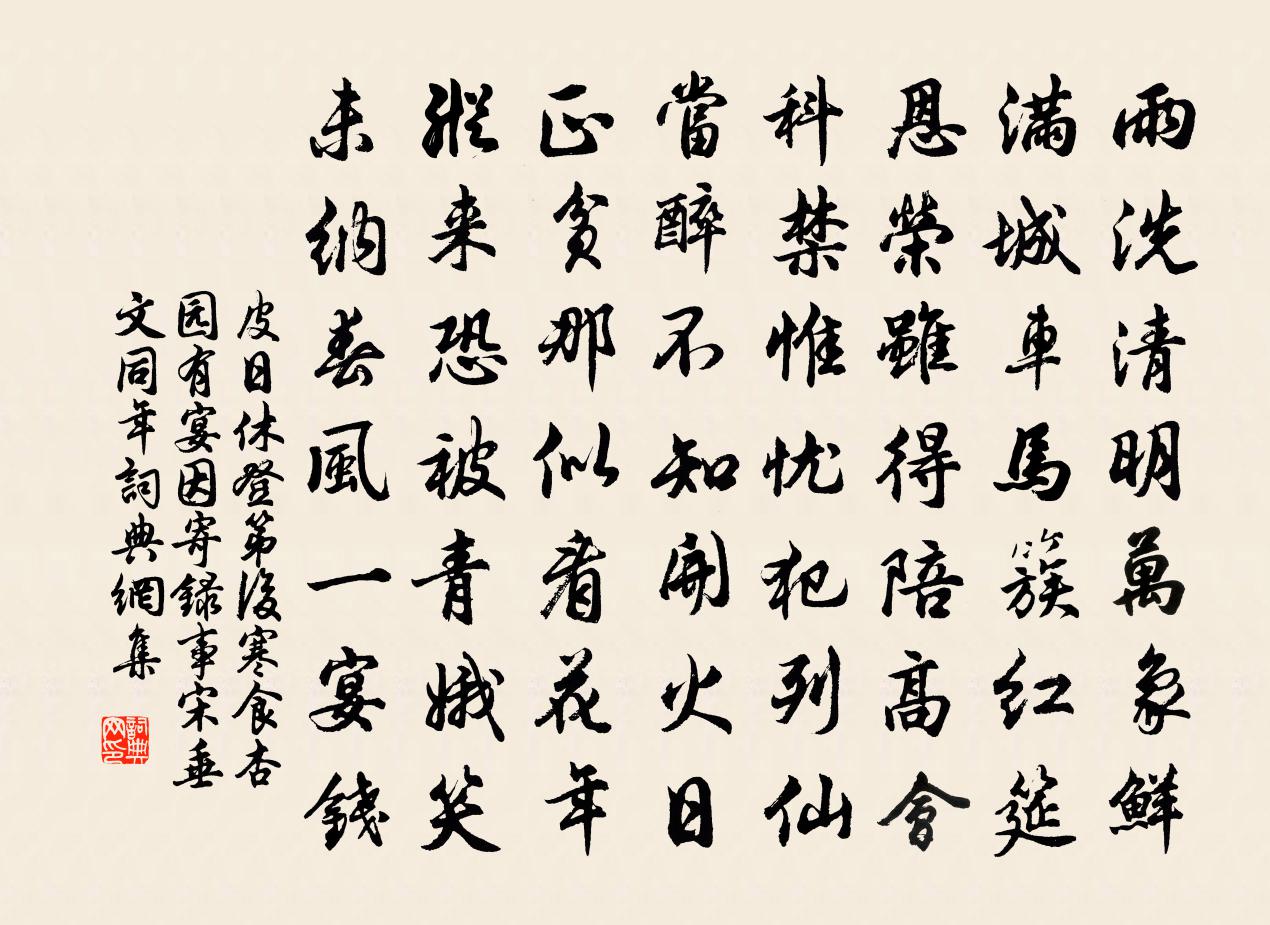 雨洗清明萬象鮮
滿城車馬簇紅筵
恩榮雖得陪高會
科禁惟忧犯列仙
當醉不知開火日
正貧那似看花年
縱来恐被青娥笑
未納春風一宴錢
皮日休登第後寒食杏
园有宴因寄錄事宋垂
文同年詞典網集
詞典网印